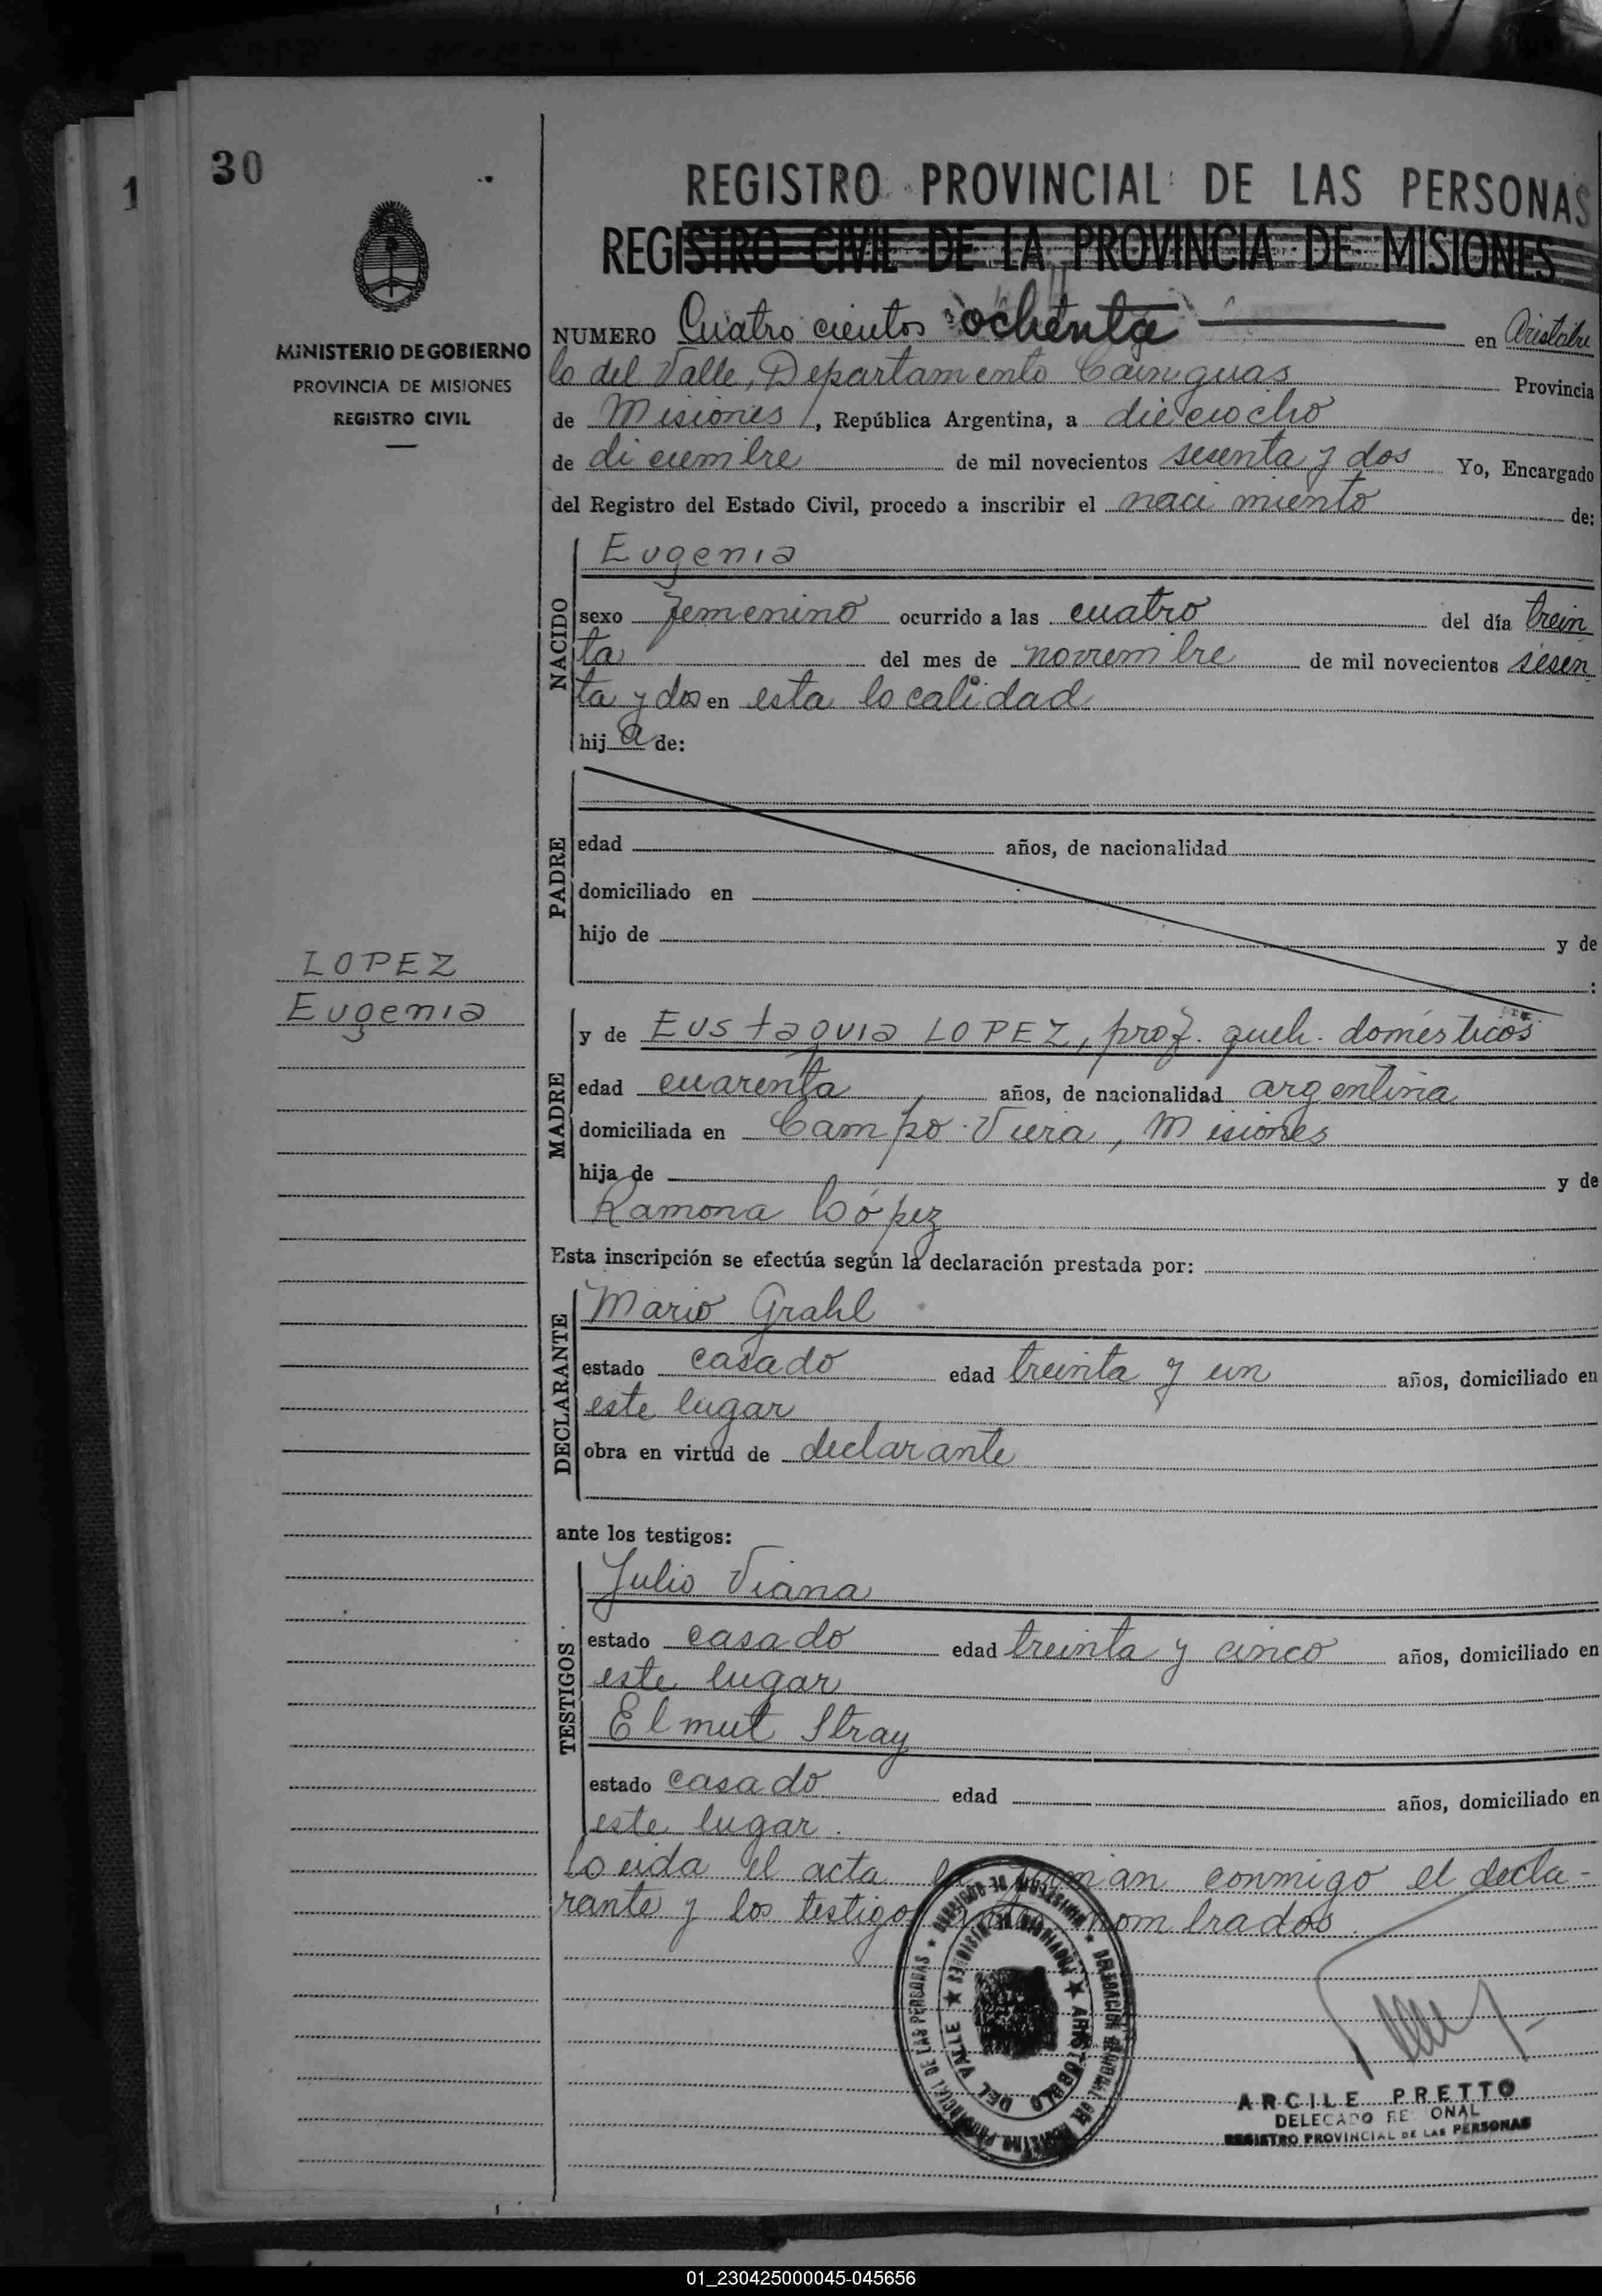 30
1
REGISTRO PROVINCIAL DE LAS PERSONAS
REGISTRO CIVIL DE LA PROVINCIA DE MISIONES
MINISTERIO DE GOBIERNO
PROVINCIA DE MISIONES
REGISTRO CIVIL
NUMERO Cuatro cientos ochenta en Aristóbu
lo del Valle, Departamento Cainguas Provincia
de Misiones, República Argentina, a dieciocho
de diciembre de mil novecientos sesenta y dos Yo, Encargado
del Registro del Estado Civil, procedo a inscribir el nacimiento de:
NACIDO
Eugenia
sexo femenino ocurrido a las cuatro del día trein
ta del mes de noviembre de mil novecientos sesen
ta y dos en esta localidad
hij a de:
PADRE
edad años, de nacionalidad
domiciliado en
hijo de y de
:
LOPEZ
Eugenia
MADRE
y de Eustaquia LOPEZ, prof. queh. domésticos
edad cuarenta años, de nacionalidad argentina
domiciliada en Campo Viera, Misiones
hija de y de
Ramona López
Esta inscripción se efectúa según la declaración prestada por:
DECLARANTE
Mario Grahl
estado casado edad treinta y un años, domiciliado en
este lugar
obra en virtud de declarante
ante los testigos:
TESTIGOS
Julio Viana
estado casado edad treinta y cinco años, domiciliado en
este lugar
Elmut Stray
estado casado edad años, domiciliado en
este lugar.
Leída el acta la firman conmigo el decla-
rante y los testigos antes nombrados.
REGISTRO PROVINCIAL DE LAS PERSONAS ★ MINISTERIO DE GOBIERNO ★ DELEGACIÓN REGIONAL DEL
PROVINCIA DE MISIONES ★ ARISTÓBULO DEL VALLE ★
ARCILE PRETTO
DELEGADO RE ONAL
REGISTRO PROVINCIAL DE LAS PERSONAS
01_230425000045-045656